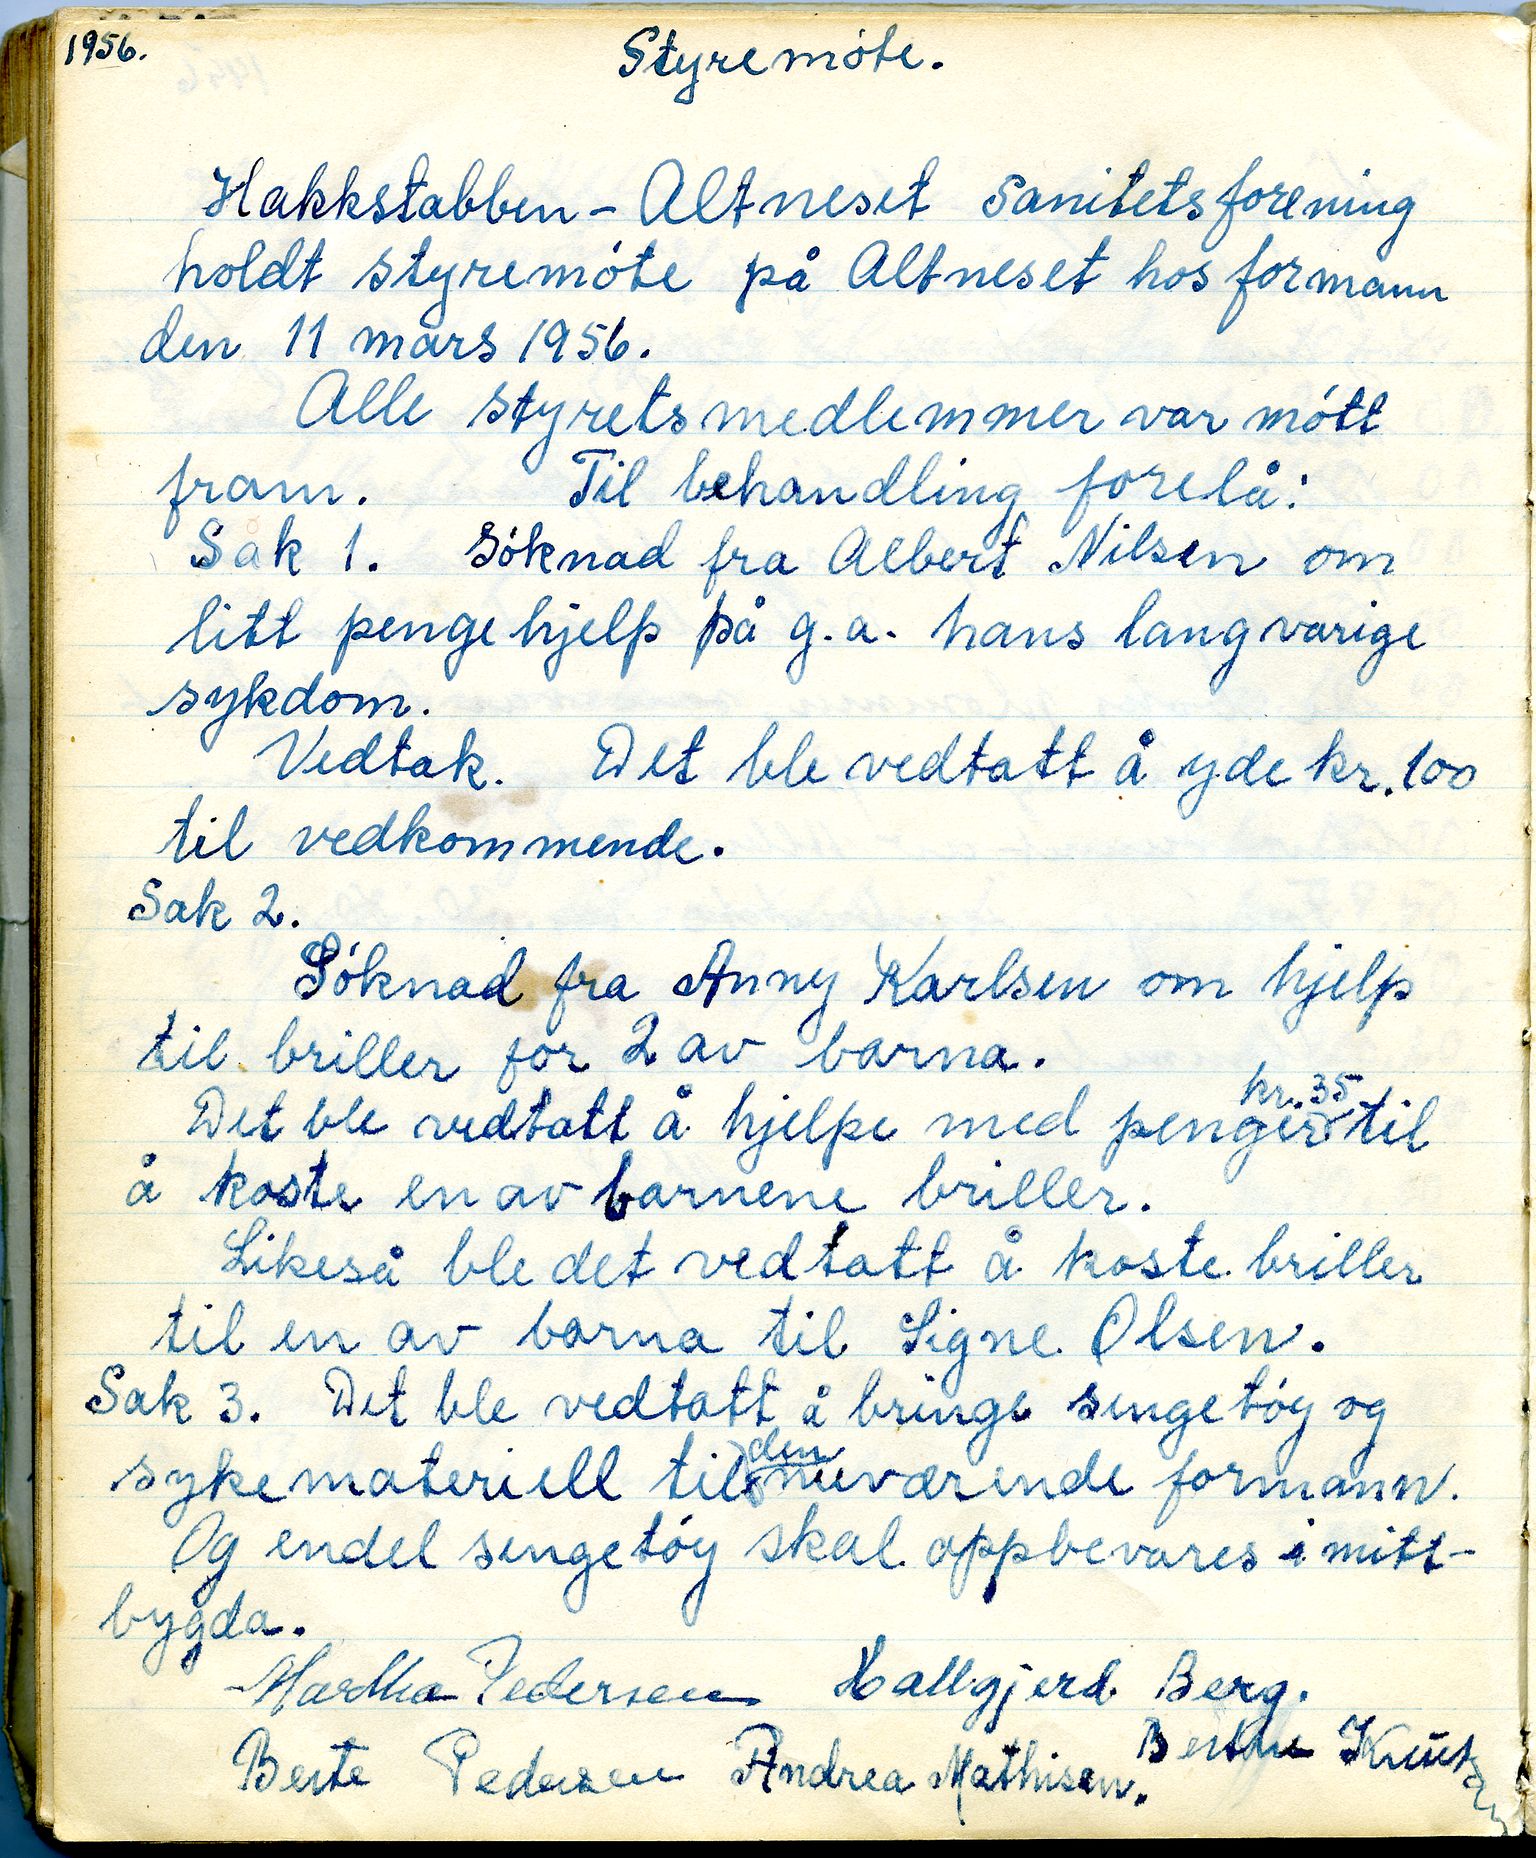 1956.
Styremóte.
Hakkstabben - Altneset Sanitetsforening
holdt styremóte på Altneset hos formann
den 11 mars 1956.
Alle styrets medlemmer var mótt
fram. Til behandling forelå:
Sak 1. Sóknad fra Albert Nilsen om
litt penge hjelp på g.a. hans langvarige
sykdom.
Vedtak. Det ble vedtatt å yde kr. 100
til vedkommende.
Sak 2.
Sóknad fra Anny Karlsen om hjelp
til briller for 2 av barna.
kr. 35
Det ble vedtatt å hjelpe med penger til
å koste en av barnene briller.
Likeså ble det vedtatt å koste briller
til en av barna til Signe Olsen.
Sak 3. Det ble vedtatt å bringe sengetóy og
den
sykemateriell til nuværende formann.
Og endel sengetóy skal oppbevares i mitt-
bygda.
Martha Pedersen Hallgjerd Berg.
Berte Pedersen Andrea Mathisen.